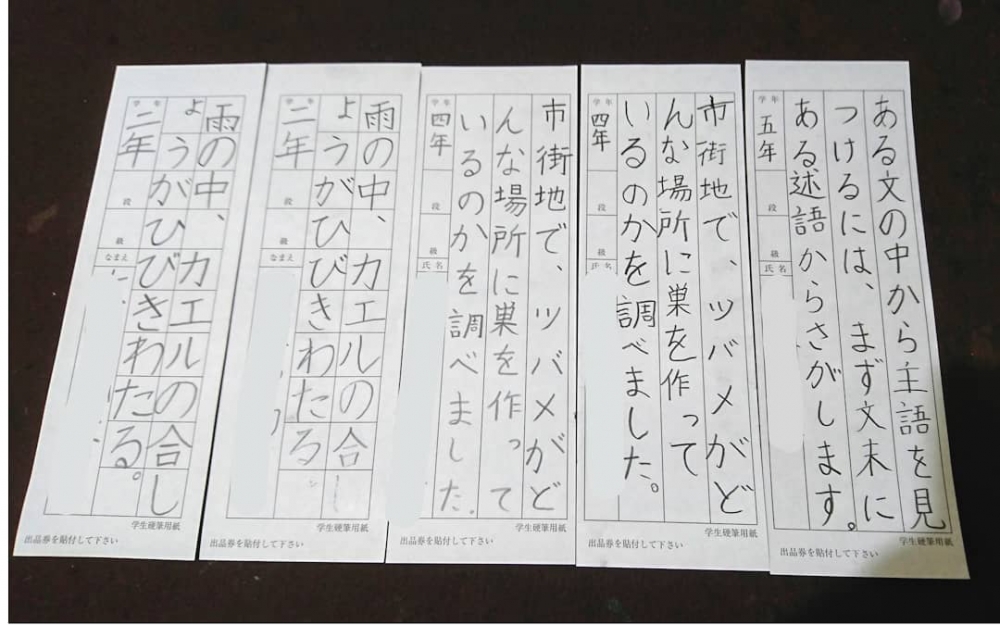 ある文の中から主語を見
つけるには、まず文末に
ある述語からさがします。
学年 五年 段 級 氏名
学生硬筆用紙
出品券を貼付して下さい
市街地で、ツバメがど
んな場所に巣を作って
いるのかを調べました。
学年 四年 段 級 氏名
学生硬筆用紙
出品券を貼付して下さい
市街地で、ツバメがど
んな場所に巣を作って
いるのかを調べました.
学年 四年 段 級 氏名
学生硬筆用紙
出品券を貼付して下さい
雨の中、カエルの合し
ょうがひびきわたる
学年 二年 段 級 なまえ
学生硬筆用紙
出品券を貼付して下さい
雨の中、カエルの合し
ょうがひびきわたる。
学年 二年 段 級 なまえ
学生硬筆用紙
出品券を貼付して下さい